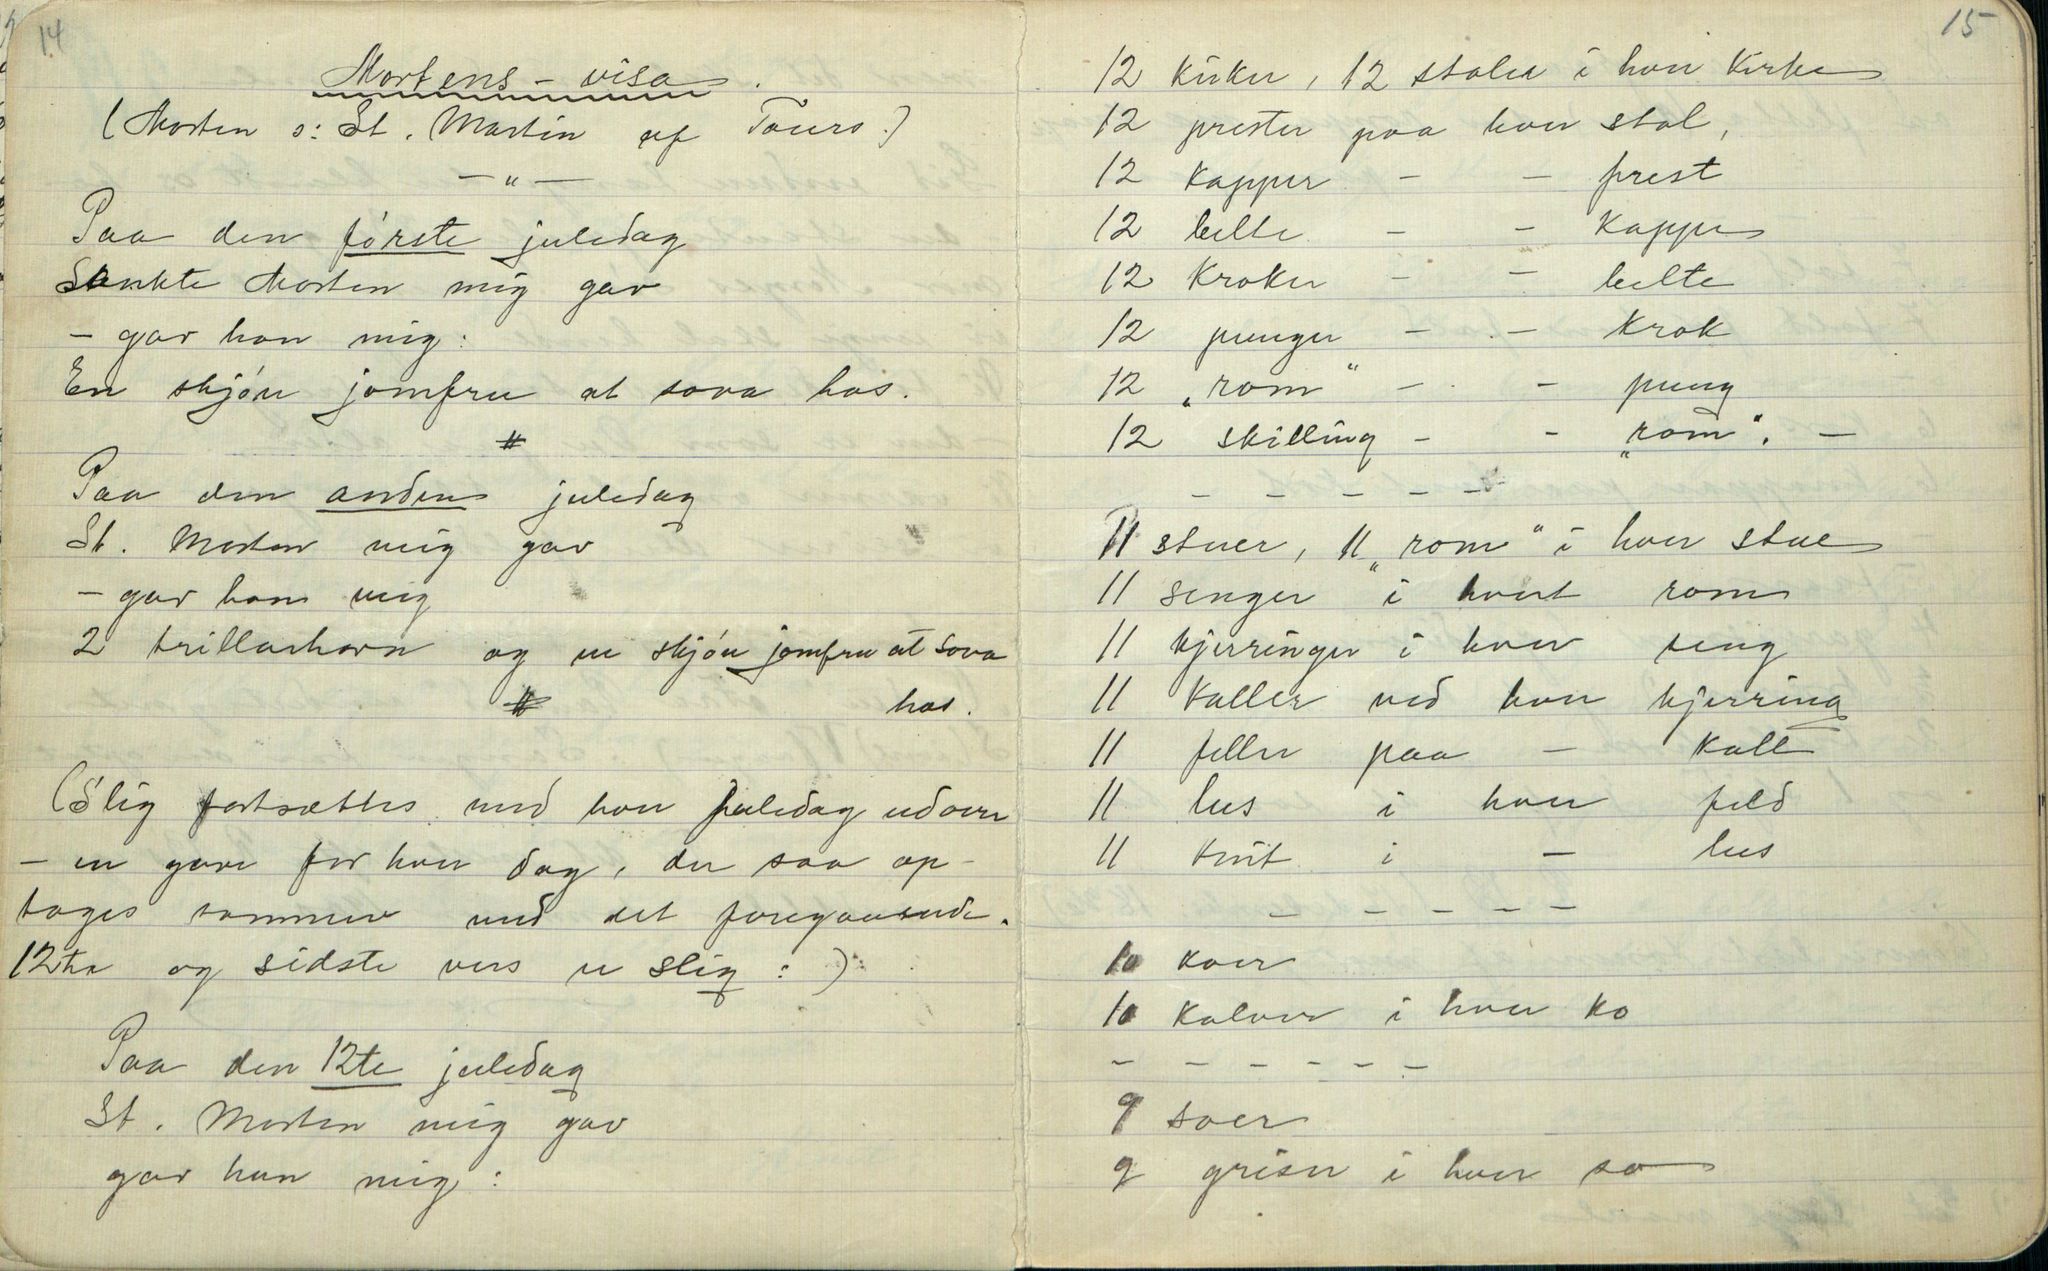 14
Mortens-visa.
(Morten ɔ: St. Martin af Tours.)
— " —
Paa den første juledag
Sankte Morten mig gav
- gav han mig:
En skjøn jomfru at sova hos.
#
Paa den anden juledag
St. Morten mig gav
- gav han mig
2 trillarhorn og en skjøn jomfru at sova
hos.
#
(Slig fortsættes med hver juledag udover
- en gave for hver dag, der saa op-
tages sammen med det foregaaende.
12te og sidste vers er slig:)
Paa den 12te juledag
St. Morten mig gav
gav han mig:
15
12 kirker, 12 stoler i hver kirke
12 prester paa hver stol,
12 kapper - - prest
12 belte - - kappe
12 kroker - - belte
12 punger - - krok
12 „rom“ - - pung
12 skilling - - „rom“. -
- - - - -
11 stuer, 11 „rom“ i hver stue
11 senger i hvert rom
11 kjerringer i hver seng
11 kaller ved hver kjerring
11 feller paa - kall
11 lus i hver feld
11 knit i - lus
- - - - -
10 koer
10 kalver i hver ko
- - - - - -
9 soer
9 griser i hver so